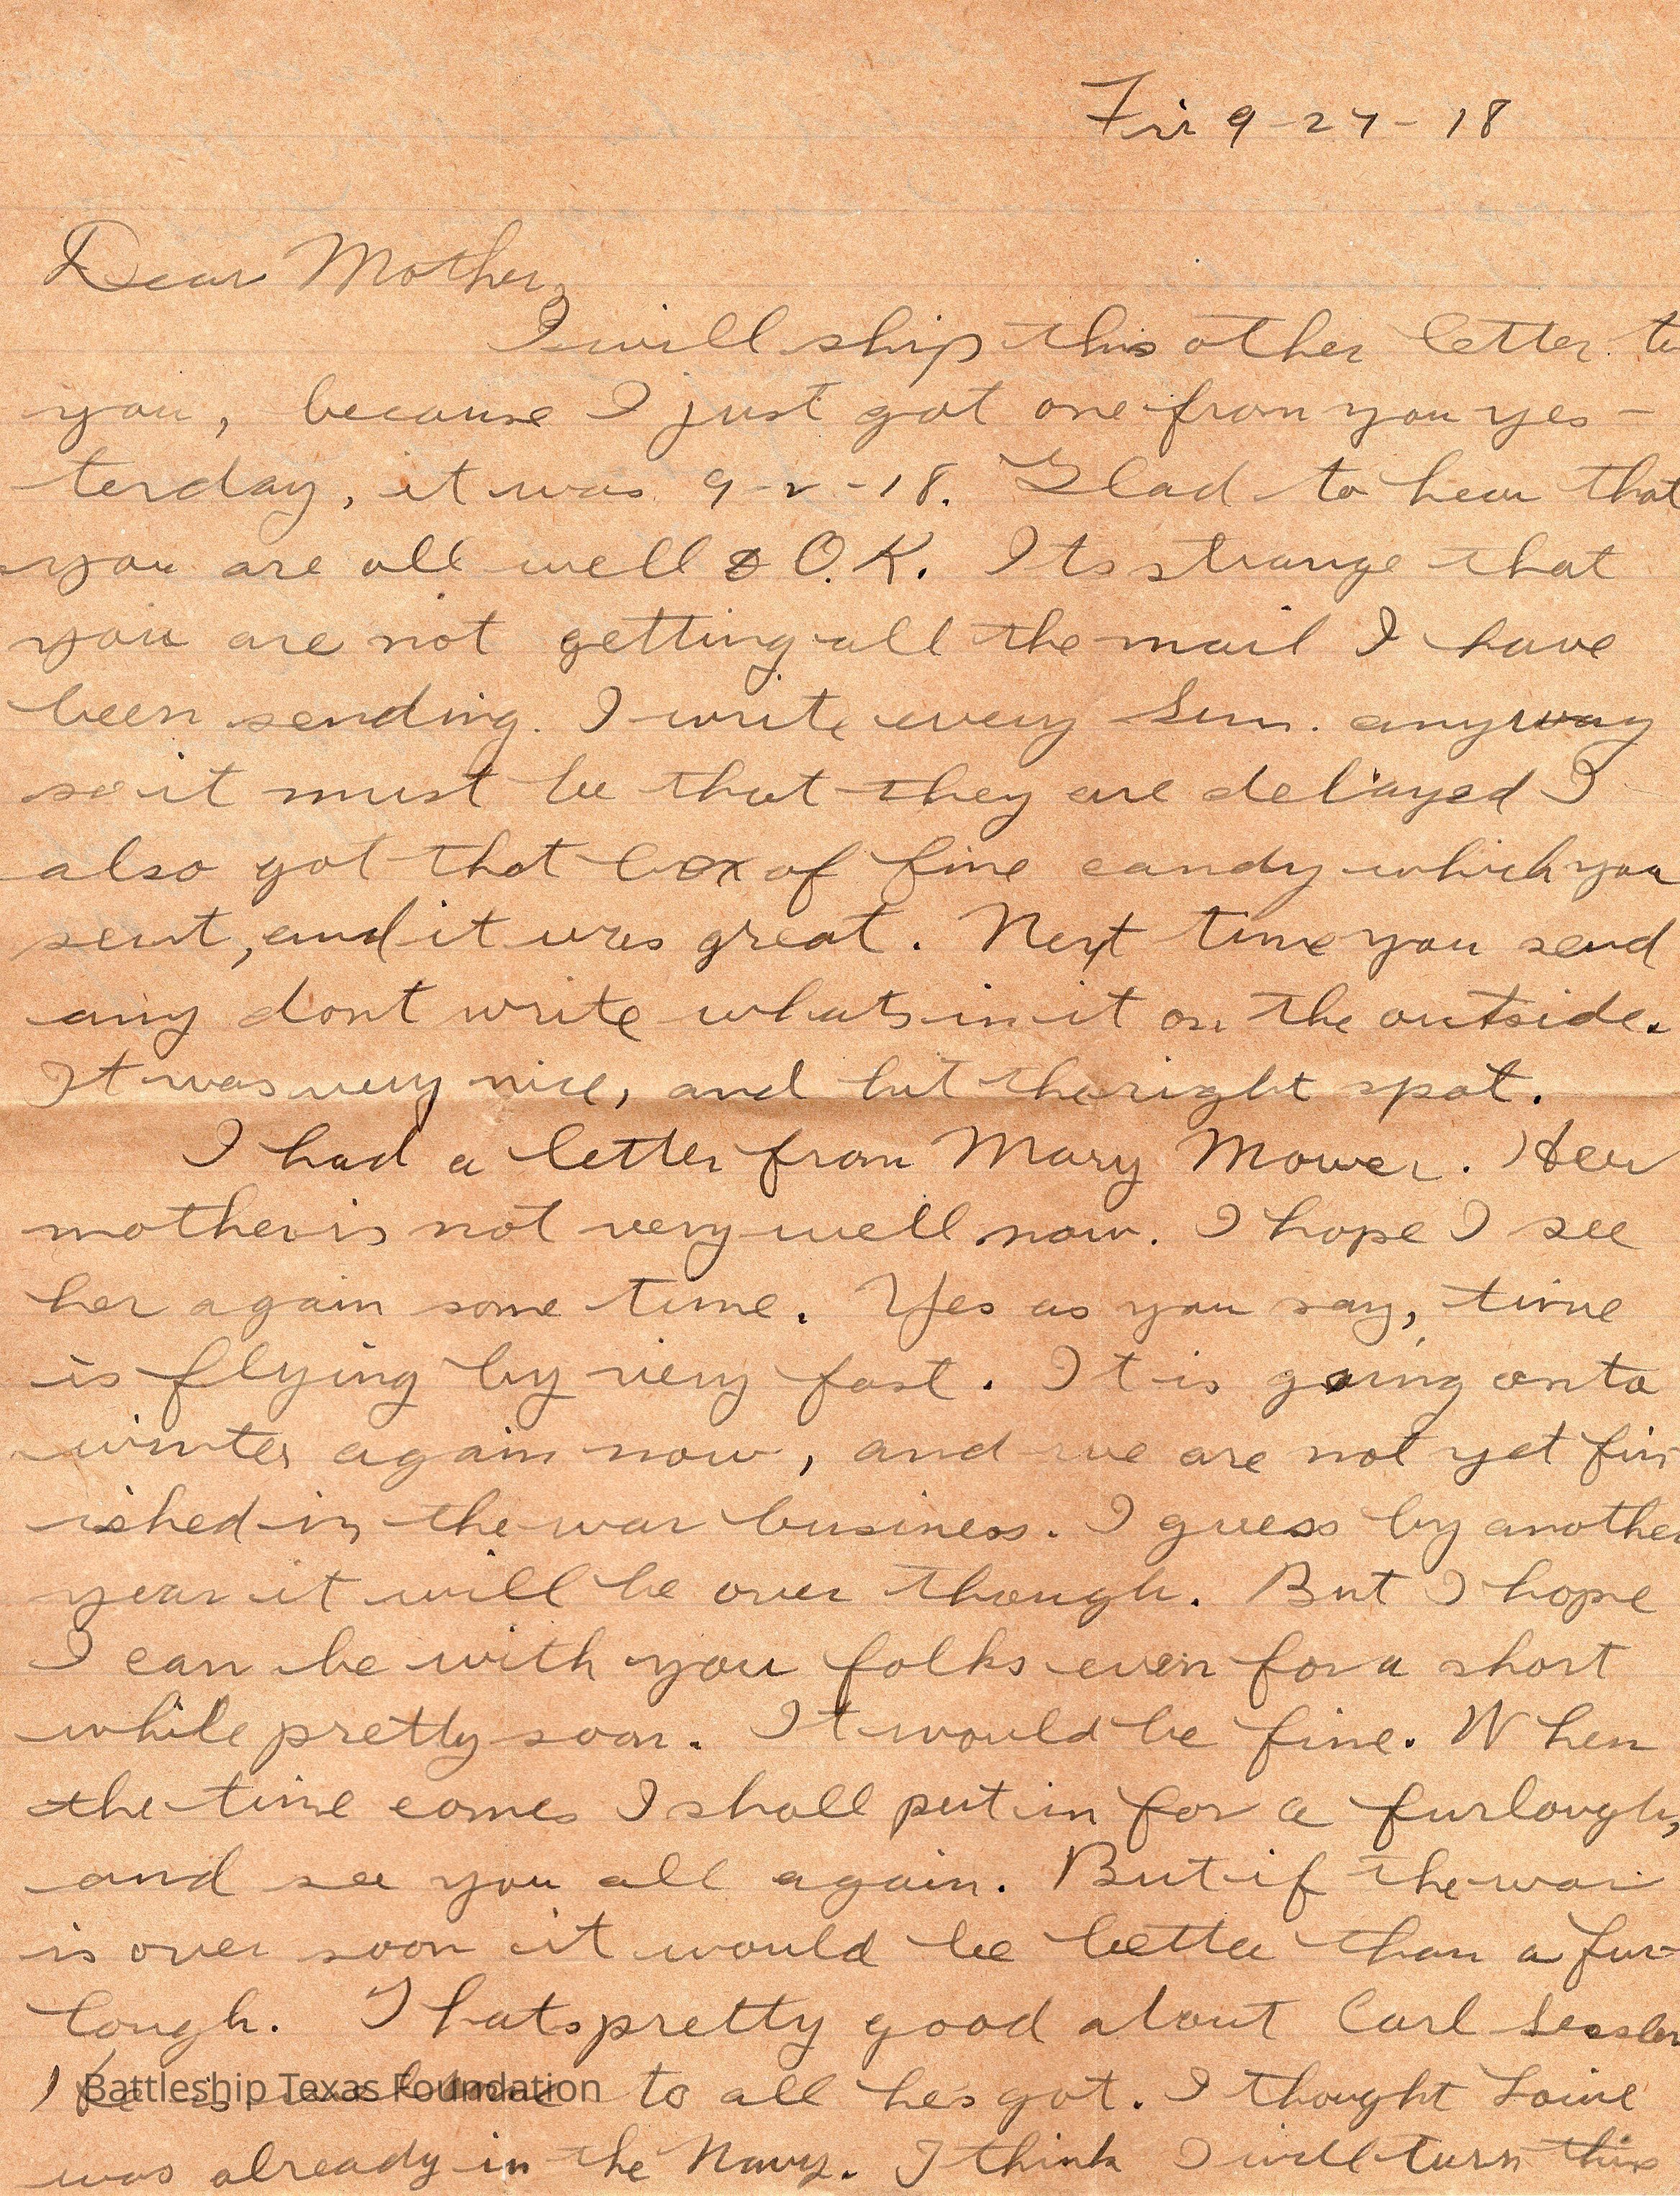 Fri 9-27-18
Dear Mother,
I will ship this other letter to
you, because I just got one from you yes-
terday, it was 9-2-18. Glad to hear that
you are all well & O.K. Its strange that
you are not getting all the mail I have
been sending. I write every Sun. anyway
so it must be that they are delayed I
also got that box of fine candy which you
sent, and it was great. Next time you send
any dont write whats in it on the outside.
It was very nice, and hit the right spot.
I had a letter from Mary Mower. Her
mother is not very well now. I hope I see
her again some time. Yes as you say, time
is flying by very fast. It is going onto
winter again now, and we are not yet fin
ished in the war business. I guess by another
year it will be over though. But I hope
I can be with you folks even for a short
while pretty soon. It would be fine. When
the time comes I shall put in for a furlough,
and see you all again. But if the war
is over soon it would be better than a fur-
lough. Thats pretty good about Carl Sessler
He is welcome to all hes got. I thought
Battleship Texas Foundation
was already in the Navy. I think I will turn this